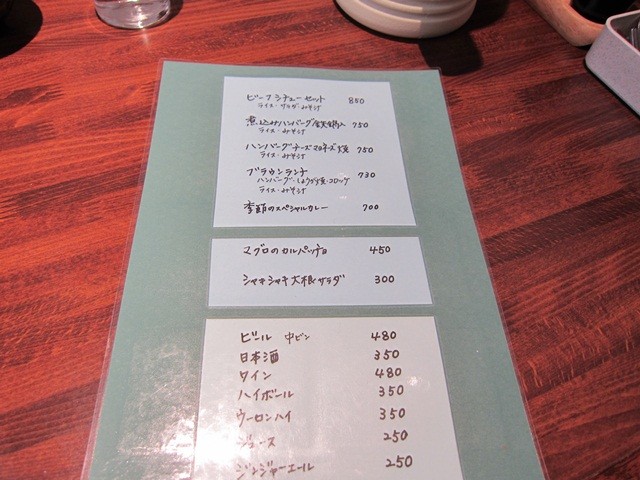 ビーフシチューセット 850
ライス・サラダ・みそ汁
煮込みハンバーグ 750
ライス・みそ汁
ハンバーグチーズマヨネーズ焼 750
ライス・みそ汁
ブラウンランチ 730
ハンバーグ・しょうが焼・コロッケ
ライス・みそ汁
季節のスペシャルカレー 700
マグロのカルパッチョ 450
シャキシャキ大根サラダ 300
ビール 中ビン 480
日本酒 350
ワイン 480
ハイボール 350
ウーロンハイ 350
ジュース 250
ジンジャーエール 250